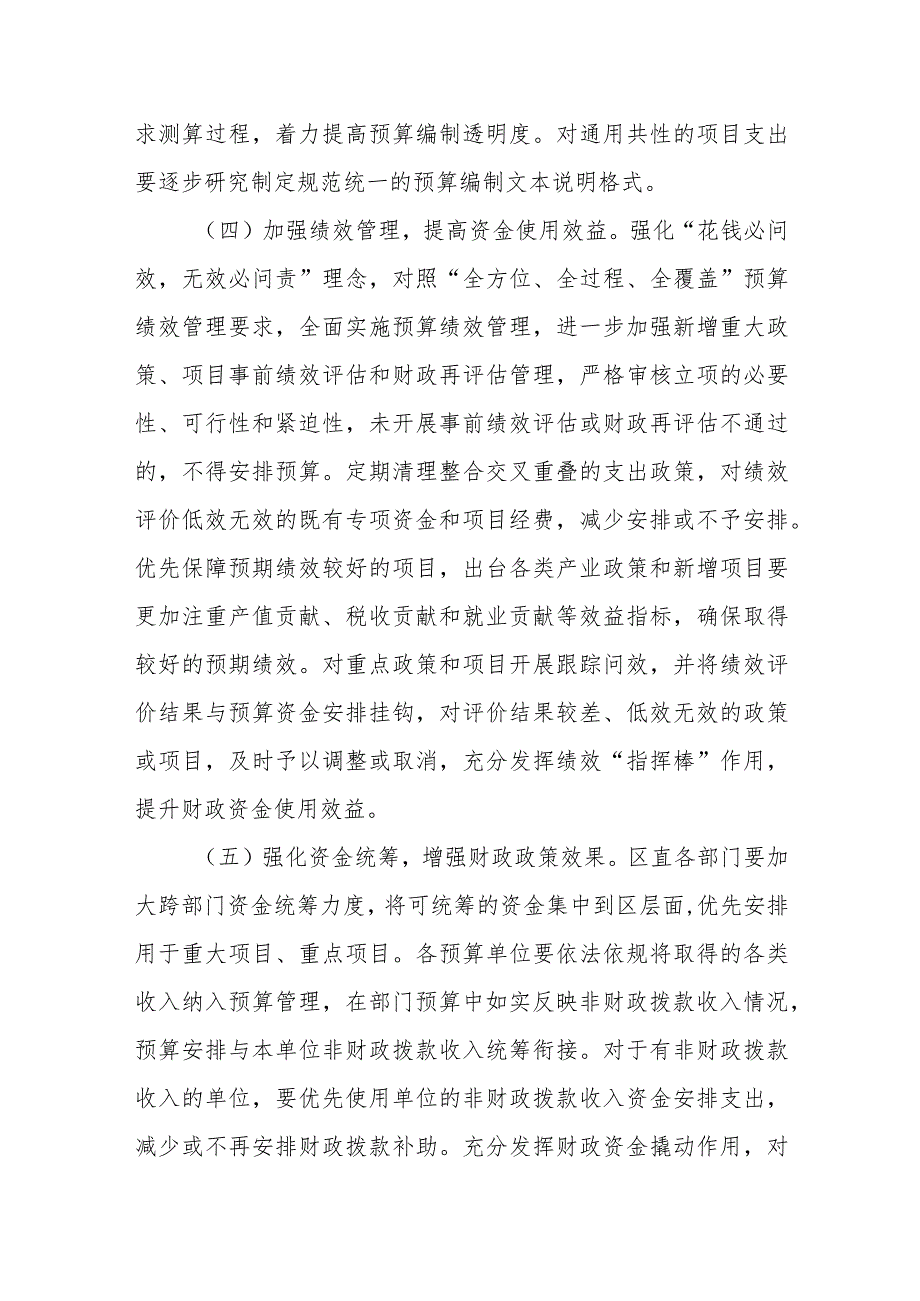 求测算过程，着力提高预算编制透明度。对通用共性的项目支出
要逐步研究制定规范统一的预算编制文本说明格式。
（四）加强绩效管理，提高资金使用效益。强化“花钱必问
效，无效必问责”理念，对照“全方位、全过程、全覆盖”预算
绩效管理要求，全面实施预算绩效管理，进一步加强新增重大政
策、项目事前绩效评估和财政再评估管理，严格审核立项的必要
性、可行性和紧迫性，未开展事前绩效评估或财政再评估不通过
的，不得安排预算。定期清理整合交叉重叠的支出政策，对绩效
评价低效无效的既有专项资金和项目经费，减少安排或不予安排。
优先保障预期绩效较好的项目，出台各类产业政策和新增项目要
更加注重产值贡献、税收贡献和就业贡献等效益指标，确保取得
较好的预期绩效。对重点政策和项目开展跟踪问效，并将绩效评
价结果与预算资金安排挂钩，对评价结果较差、低效无效的政策
或项目，及时予以调整或取消，充分发挥绩效“指挥棒”作用，
提升财政资金使用效益。
（五）强化资金统筹，增强财政政策效果。区直各部门要加
大跨部门资金统筹力度，将可统筹的资金集中到区层面,优先安排
用于重大项目、重点项目。各预算单位要依法依规将取得的各类
收入纳入预算管理，在部门预算中如实反映非财政拨款收入情况，
预算安排与本单位非财政拨款收入统筹衔接。对于有非财政拨款
收入的单位，要优先使用单位的非财政拨款收入资金安排支出，
减少或不再安排财政拨款补助。充分发挥财政资金撬动作用，对